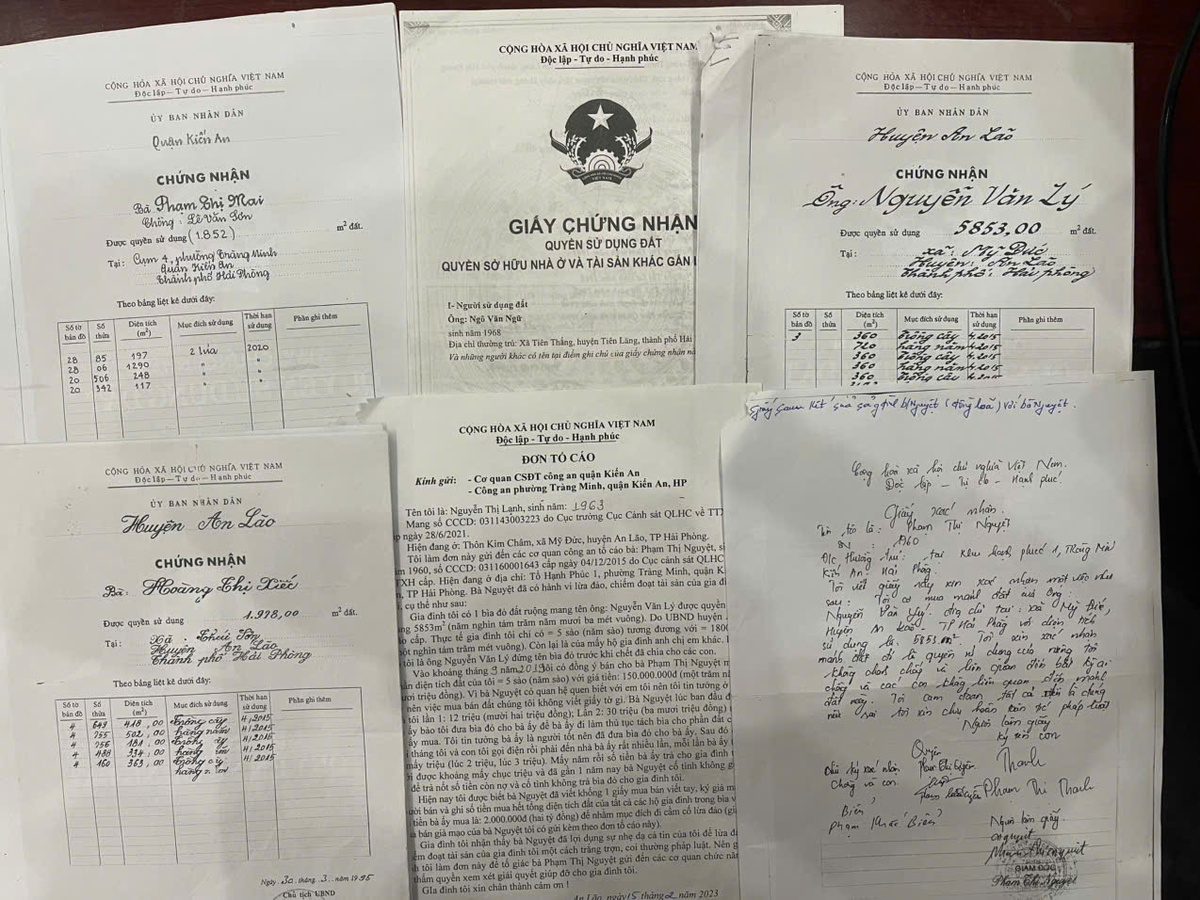 CỘNG HÒA XÃ HỘI CHỦ NGHĨA VIỆT NAM
Độc lập – Tự do – Hạnh phúc
ỦY BAN NHÂN DÂN
Quận Kiến An
CHỨNG NHẬN
Bà Phạm Thị Mai
Chồng: Lê Văn Sơn
Được quyền sử dụng (1.852) m² đất.
Tại: Cụm 4, phường Tràng Minh
Quận Kiến An
Thành phố Hải Phòng
Theo bảng liệt kê dưới đây:
Số tờ bản đồ Số thửa Diện tích (m²) Mục đích sử dụng Thời hạn sử dụng Phần ghi thêm
28 85 197 2 lúa 2020
28 06 1290 " "
20 506 248 " "
20 342 117 " "
CỘNG HÒA XÃ HỘI CHỦ NGHĨA VIỆT NAM
Độc lập - Tự do - Hạnh phúc
VIỆT NAM
GIẤY CHỨNG NHẬN
QUYỀN SỬ DỤNG ĐẤT
QUYỀN SỞ HỮU NHÀ Ở VÀ TÀI SẢN KHÁC GẮN L
I- Người sử dụng đất
Ông: Ngô Văn Ngữ
sinh năm 1968
Địa chỉ thường trú: Xã Tiên Thắng, huyện Tiên Lãng, thành phố Hải
Và những người khác có tên tại điểm ghi chú của giấy chứng nhận nà
CỘNG HÒA XÃ HỘI CHỦ NGHĨA VIỆT NAM
Độc lập – Tự do – Hạnh phúc
Huyện An Lão
CHỨNG NHẬN
Ông: Nguyễn Văn Lý
Được quyền sử dụng 5853,00 m² đất.
Tại: xã: Mỹ Đức
Huyện: An Lão
Thành phố: Hải phòng
Theo bảng liệt kê dưới đây:
Số tờ bản đồ Số thửa Diện tích (m²) Mục đích sử dụng Thời hạn sử dụng Phần ghi thêm
3 360 trồng cây 4.2015
720 hàng năm 4.2015
360 trồng cây 4.2015
360 hàng năm 4.2015
360 trồng cây 4.2015
CỘNG HÒA XÃ HỘI CHỦ NGHĨA VIỆT NAM
Độc lập – Tự do – Hạnh phúc
ỦY BAN NHÂN DÂN
Huyện An Lão
CHỨNG NHẬN
Bà: Hoàng Thị Xiếc
Được quyền sử dụng 1.978,00 m² đất.
Tại: Xã. Thái Sơn
Huyện An Lão
Thành phố Hải Phòng
Theo bảng liệt kê dưới đây:
Số tờ bản đồ Số thửa Diện tích (m²) Mục đích sử dụng Thời hạn sử dụng Phần ghi thêm
4 649 418,00 trồng cây 4/2015
4 755 502,00 hàng năm 4/2015
4 756 181,00 trồng cây 4/2015
4 488 334,00 hàng năm 4/2015
4 160 363,00 trồng cây 4/2015
hàng năm
Ngày 30 tháng 3 năm 1995
Chủ tịch UBND
CỘNG HÒA XÃ HỘI CHỦ NGHĨA VIỆT NAM
Độc lập - Tự do - Hạnh phúc
ĐƠN TỐ CÁO
Kính gửi: - Cơ quan CSĐT công an quận Kiến An
- Công an phường Tràng Minh, quận Kiến An, HP
Tên tôi là: Nguyễn Thị Lạnh, sinh năm: 1963
Mang số CCCD: 031143003223 do Cục trưởng Cục Cảnh sát QLHC về TT
ấp ngày 28/6/2021.
Hiện đang ở: Thôn Kim Châm, xã Mỹ Đức, huyện An Lão, TP Hải Phòng.
Tôi làm đơn này gửi đến các cơ quan công an tố cáo bà: Phạm Thị Nguyệt, si
m 1960, mang số CCCD: 031160001643 cấp ngày 04/12/2015 do Cục cảnh sát QLHC
TXH cấp. Hiện đang ở địa chỉ: Tổ Hạnh Phúc 1, phường Tràng Minh, quận K
, TP Hải Phòng. Bà Nguyệt đã có hành vi lừa đảo, chiếm đoạt tài sản của gia đì
, cụ thể như sau:
Gia đình tôi có 1 bìa đỏ đất ruộng mang tên ông: Nguyễn Văn Lý được quyền
ng 5853m² (năm nghìn tám trăm năm mươi ba mét vuông). Do UBND huyện
cấp. Thực tế gia đình tôi chỉ có = 5 sào (năm sào) tương đương với = 180
t nghìn tám trăm mét vuông). Còn lại là của mấy hộ gia đình anh chị em khác.
tôi là ông Nguyễn Văn Lý đứng tên bìa đỏ trước khi chết đã chia cho các con.
Vào khoảng tháng 9 năm 2019 tôi có đồng ý bán cho bà Phạm Thị Nguyệt m
diện tích đất của tôi = 5 sào (năm sào) với giá tiền: 150.000.000đ (một trăm n
ươi triệu đồng). Vì bà Nguyệt có quan hệ quen biết với em tôi nên tôi tin tưởng ở
nên việc mua bán đất chúng tôi không viết giấy tờ gì. Bà Nguyệt lúc ban đầu đ
tôi lần 1: 12 triệu (mười hai triệu đồng); Lần 2: 30 triệu (ba mươi triệu đồng)
ấy bảo tôi đưa bìa đỏ cho bà ấy để bà ấy đi làm thủ tục tách bìa cho phần đất c
ấy mua. Tôi tin tưởng bà ấy là người tốt nên đã đưa bìa đỏ cho bà ấy. Sau đó
tháng tôi và con tôi gọi điện rồi phải đến nhà bà ấy rất nhiều lần, mỗi lần bà ấy t
mấy triệu (lúc 2 triệu, lúc 3 triệu). Mấy năm rồi số tiền bà ấy trả cho gia đình
i được khoảng mấy chục triệu và đã gần 1 năm nay bà Nguyệt cố tình không g
để trả nốt số tiền còn nợ và cố tình không trả bìa đỏ cho gia đình tôi.
Hiện nay tôi được biết bà Nguyệt đã viết khống 1 giấy mua bán viết tay, ký giả m
ười bán và ghi số tiền mua hết tổng diện tích đất của tất cả các hộ gia đình trong bìa v
tiền bà ấy mua là: 2.000.000đ (hai tỷ đồng) để nhằm mục đích đi cầm cố lừa đảo (gi
bán giả mạo của bà Nguyệt tôi có gửi kèm theo đơn tố cáo này).
Gia đình tôi nhận thấy bà Nguyệt đã lợi dụng sự nhẹ dạ cả tin của tôi để lừa đ
iếm đoạt tài sản của gia đình tôi một cách trắng trợn, coi thường pháp luật. Nên g
h tôi làm đơn này để tố giác bà Phạm Thị Nguyệt gửi đến các cơ quan chức năn
thẩm quyền xem xét giải quyết giúp đỡ cho gia đình tôi.
Gia đình tôi xin chân thành cảm ơn !
An Lão, ngày 15 tháng 2 năm 2023
Giấy cam kết của gia đình b/Nguyệt (đồng loã) với bà Nguyệt.
Cộng hoà xã hội chủ nghĩa Việt Nam.
Độc lập – Tự do – Hạnh phúc
Giấy xác nhận.
Tên tôi là: Phạm Thị Nguyệt
SN: 1960
Đ/c thường trú: tại khu hạnh phúc 1, Tràng Minh
Kiến An Hải Phòng
Tôi viết giấy này xin xác nhận một việc như
sau: Tôi có mua mảnh đất của Ông:
Nguyễn Văn Lý. địa chỉ tại: xã Mỹ Đức,
Huyện An Lão - TP Hải Phòng với diện tích
sử dụng là: 5853 m². Tôi xin xác nhận
mảnh đất đó là quyền sử dụng của riêng tôi
không chanh chấp và liên quan đến bất kỳ ai
chồng và các con không liên quan đến mảnh
đất này. Tôi cam đoan tất cả trên là đúng
nếu sai tôi xin chịu hoàn toàn trước pháp luật
Người làm giấy
Chữ ký xác nhận
Chồng và con
Quyên
Thanh
Phạm Thị Thanh
Biên
Phạm Khắc Biên
Người làm giấy.
Nguyệt
GIÁM ĐỐC
Phạm Thị Nguyệt